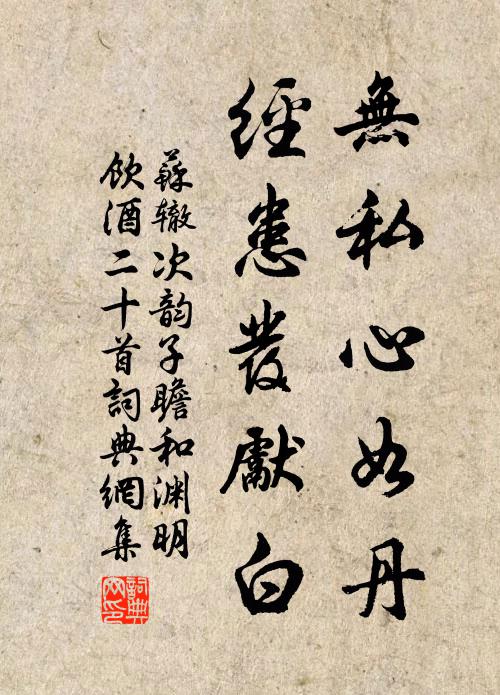 無私心如丹
經患發獻白
蘇辙次韵子瞻和渊明
飲酒二十首詞典網集